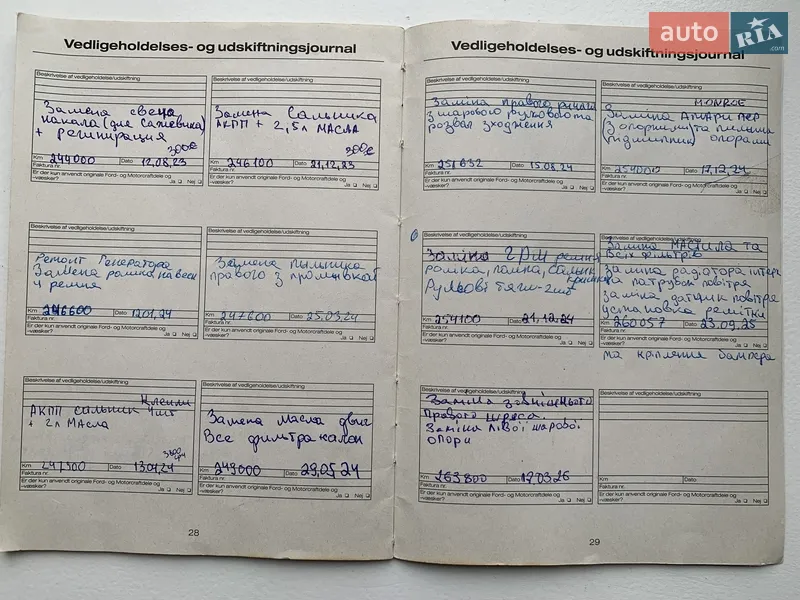 auto RIA .com
Vedligeholdelses- og udskiftningsjournal
Beskrivelse af vedligeholdelse/udskiftning
Замена свеча
накала (для сажевика)
+ регинирация
300€
Km 244000 Dato 12,08,23
Faktura nr.
Er der kun anvendt originale Ford- og Motorcraftdele og
-væsker? Ja Nej
Beskrivelse af vedligeholdelse/udskiftning
Замена Сальника
АКПП + 2,5л МАСЛА
300€
Km 246100 Dato 21,12,23
Faktura nr.
Er der kun anvendt originale Ford- og Motorcraftdele og
-væsker? Ja Nej
Beskrivelse af vedligeholdelse/udskiftning
Ремонт Генератора
Замена ролика, навеси
и ремня
Km 246600 Dato 12.01.24
Faktura nr.
Er der kun anvendt originale Ford- og Motorcraftdele og
-væsker? Ja Nej
Beskrivelse af vedligeholdelse/udskiftning
Замена пыльника
правого з промивкой
Km 247600 Dato 25.03.24
Faktura nr.
Er der kun anvendt originale Ford- og Motorcraftdele og
-væsker? Ja Nej
Beskrivelse af vedligeholdelse/udskiftning
АКПП сальник
+ 2л МАСЛА
3300
грн
Km 247500 Dato 13.01.24
Faktura nr.
Er der kun anvendt originale Ford- og Motorcraftdele og
-væsker? Ja Nej
Beskrivelse af vedligeholdelse/udskiftning
Замена масла двиг
Все фильтра салон
Km 249000 Dato 29,05,24
Faktura nr.
Er der kun anvendt originale Ford- og Motorcraftdele og
-væsker? Ja Nej
28
Vedligeholdelses- og udskiftningsjournal
Beskrivelse af vedligeholdelse/udskiftning
Заміна правого ричага
з шарового рульового та
розвал сходження
Km 251632 Dato 15.08.24
Faktura nr.
Er der kun anvendt originale Ford- og Motorcraftdele og
-væsker? Ja Nej
Beskrivelse af vedligeholdelse/udskiftning
MONROE
Заміна Амари пер
(з опорними) та пильник
(підшипник) опорами
Km 254000 Dato 17,12,24
Faktura nr.
Er der kun anvendt originale Ford- og Motorcraftdele og
-væsker? Ja Nej
Beskrivelse af vedligeholdelse/udskiftning
Заміна ГРМ ремня
ролика, помпа, сальник
Рульові тяги-2шт
Km 254100 Dato 21,12,24
Faktura nr.
Er der kun anvendt originale Ford- og Motorcraftdele og
-væsker? Ja Nej
Beskrivelse af vedligeholdelse/udskiftning
Заміна МАСТИЛА та
Всіх фільтрів
заміна радіатора інтер
та патрубок повітря
заміна датчик повітря
установка решітки
Km 260057 Dato 23.09.25
Faktura nr.
Er der kun anvendt originale Ford- og Motorcraftdele og
-væsker? Ja Nej
та кріплення бампера
Beskrivelse af vedligeholdelse/udskiftning
Заміна зовнішнього
правого шруса.
Заміна лівої шарової
опори
Km 263800 Dato 12.03.26
Faktura nr.
Er der kun anvendt originale Ford- og Motorcraftdele og
-væsker? Ja Nej
Beskrivelse af vedligeholdelse/udskiftning
Km Dato
Faktura nr.
Er der kun anvendt originale Ford- og Motorcraftdele og
-væsker? Ja Nej
29